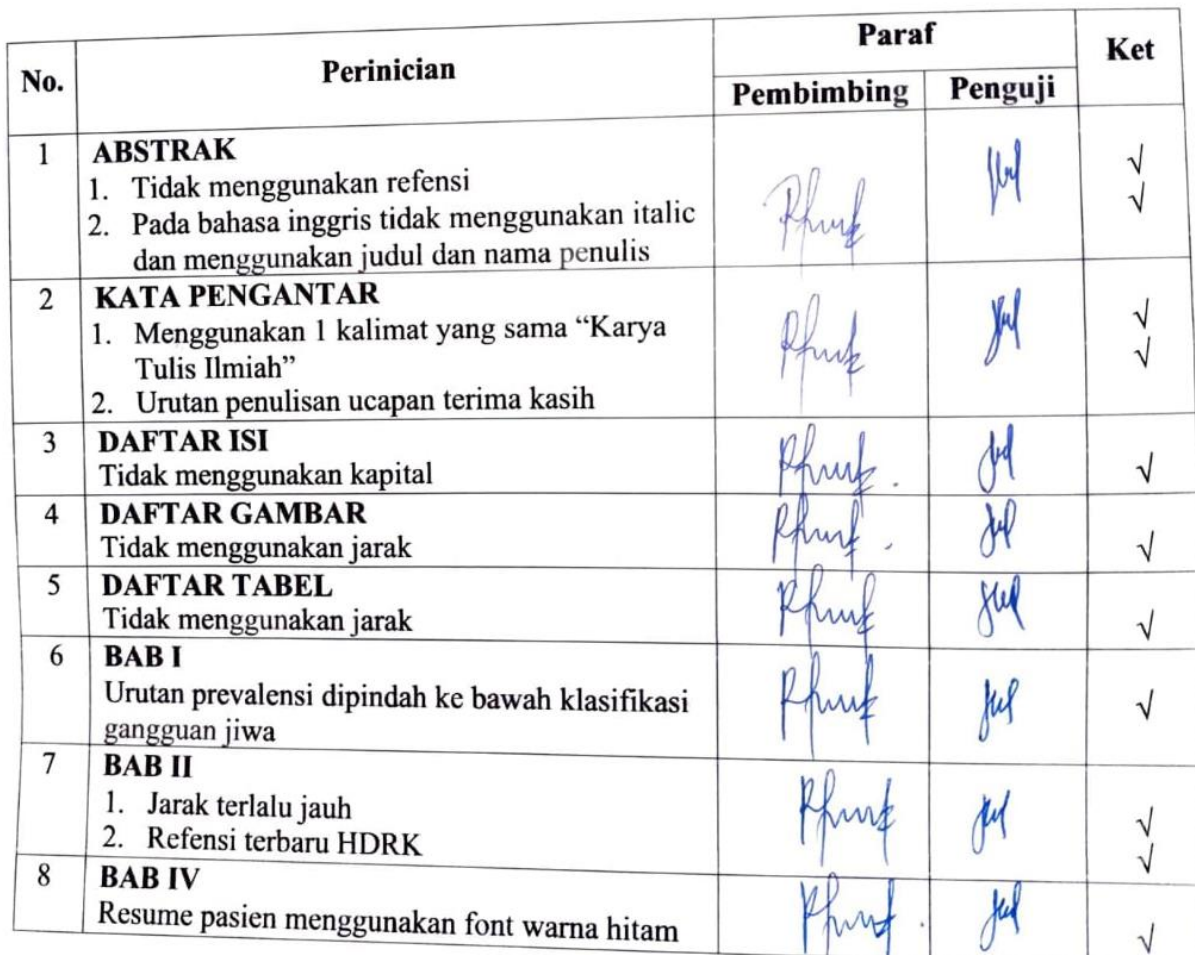 No. Perinician Paraf Ket
Pembimbing Penguji
1 ABSTRAK
1. Tidak menggunakan refensi √
2. Pada bahasa inggris tidak menggunakan italic √
dan menggunakan judul dan nama penulis
2 KATA PENGANTAR
1. Menggunakan 1 kalimat yang sama “Karya √
Tulis Ilmiah” √
2. Urutan penulisan ucapan terima kasih
3 DAFTAR ISI
Tidak menggunakan kapital √
4 DAFTAR GAMBAR
Tidak menggunakan jarak √
5 DAFTAR TABEL
Tidak menggunakan jarak √
6 BAB I
Urutan prevalensi dipindah ke bawah klasifikasi √
gangguan jiwa
7 BAB II
1. Jarak terlalu jauh √
2. Refensi terbaru HDRK √
8 BAB IV
Resume pasien menggunakan font warna hitam √